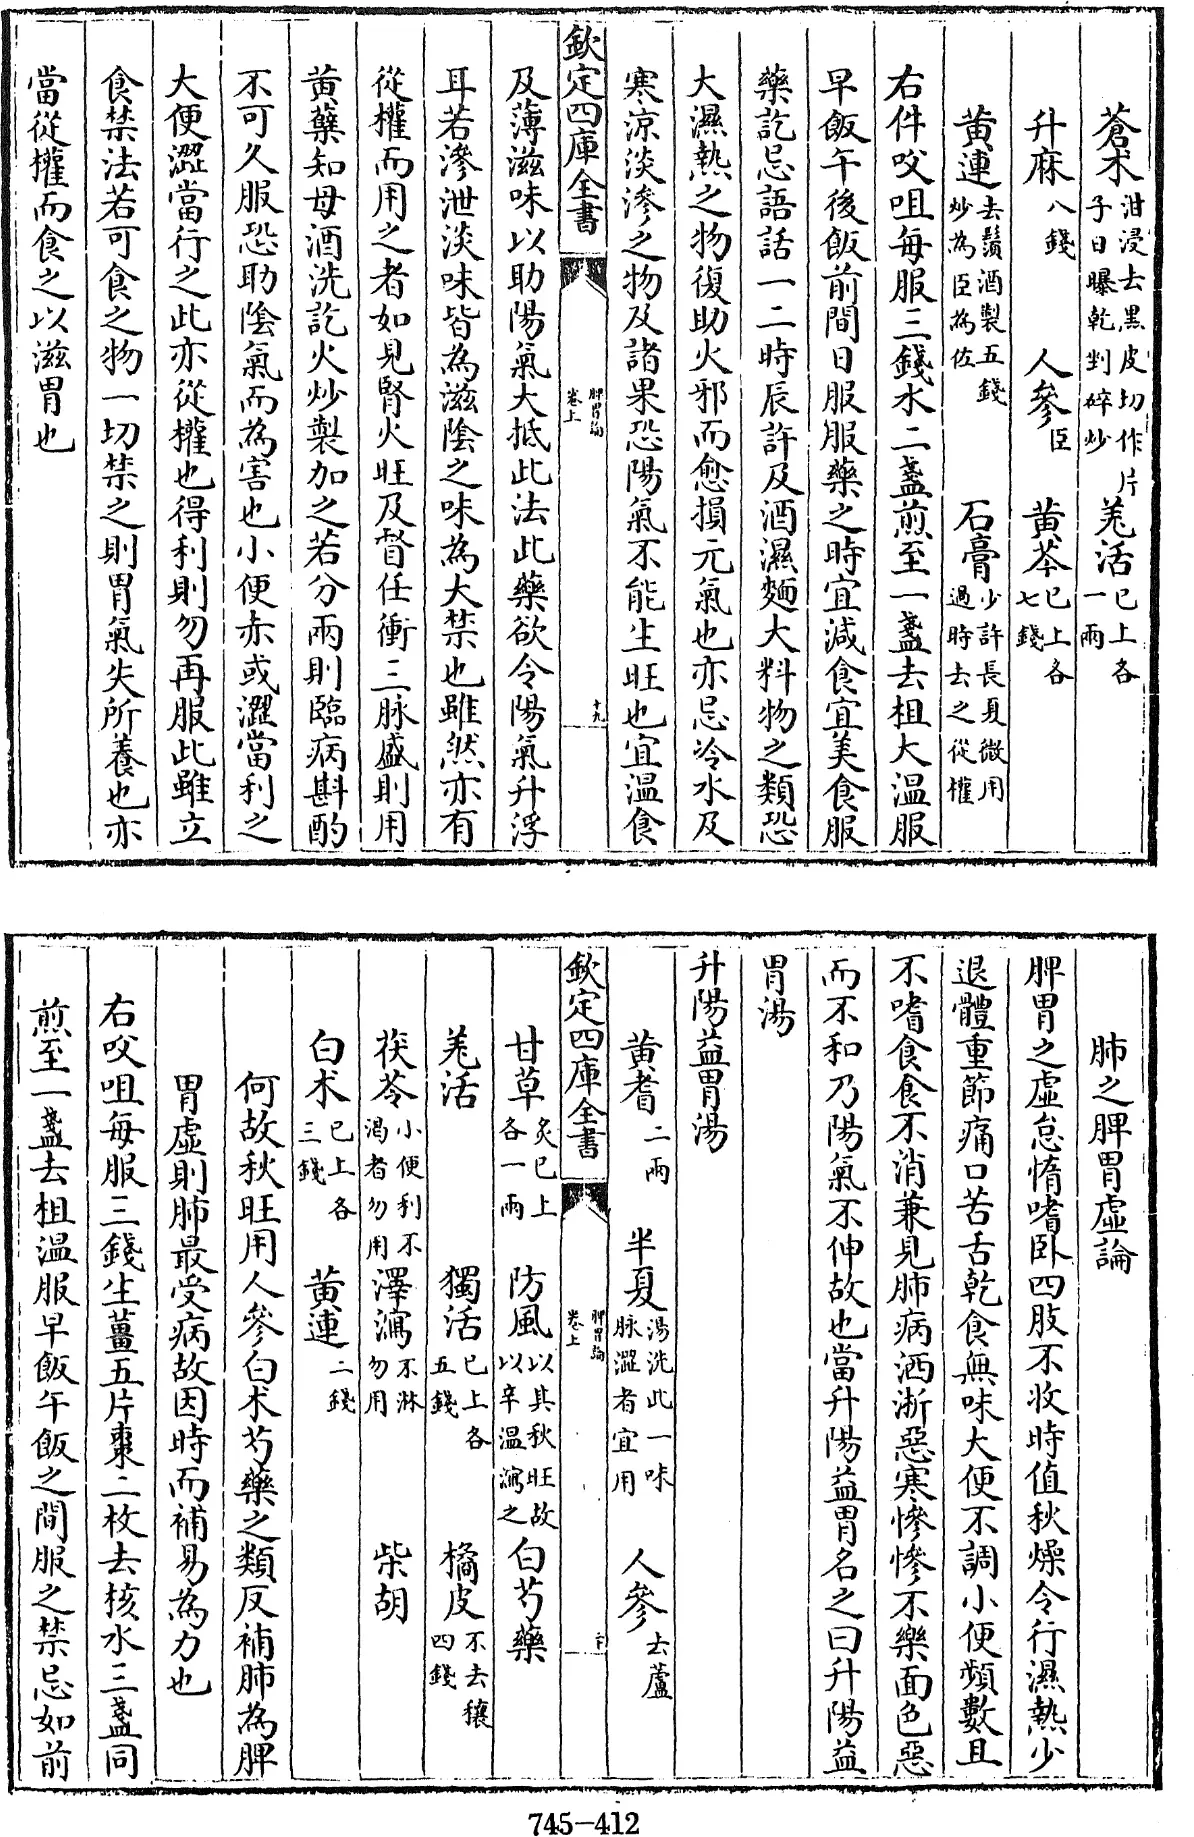 蒼术泔浸去黑皮切作片子日曝乾剉碎炒 羗活已上各一兩
升麻八錢 人參臣 黄芩已上各七錢
黄連去鬚酒製五錢炒為臣為佐 石膏少許長夏微用過時去之從權
右件㕮咀每服三錢水二盞煎至一盞去柤大温服
早飯午後飯前間日服服藥之時宜減食宜美食服
藥訖忌語話一二時辰許及酒濕麪大料物之類恐
大濕熱之物復助火邪而愈損元氣也亦忌冷水及
寒涼淡滲之物及諸果恐陽氣不能生旺也宜温食
欽定四庫全書 脾胃論卷上 十九
及薄滋味以助陽氣大抵此法此藥欲令陽氣升浮
耳若滲泄淡味皆為滋陰之味為大禁也雖然亦有
從權而用之者如見腎火旺及督任衝三脉盛則用
黄蘗知母酒洗訖火炒製加之若分兩則臨病斟酌
不可久服恐助陰氣而為害也小便赤或澀當利之
大便澀當行之此亦從權也得利則勿再服此雖立
食禁法若可食之物一切禁之則胃氣失所養也亦
當從權而食之以滋胃也
肺之脾胃虛論
脾胃之虛怠惰嗜卧四肢不收時值秋燥令行濕熱少
退體重節痛口苦舌乾食無味大便不調小便頻數且
不嗜食食不消兼見肺病洒淅惡寒慘慘不樂面色惡
而不和乃陽氣不伸故也當升陽益胃名之曰升陽益
胃湯
升陽益胃湯
黄耆二兩 半夏湯洗此一味脉澀者宜用 人參去蘆
欽定四庫全書 脾胃論卷上 二十
甘草炙已上各一兩 防風以其秋旺故以辛温瀉之 白芍藥
羗活 獨活已上各五錢 橘皮不去穰四錢
茯苓小便利不渴者勿用 澤瀉不淋勿用 柴胡
白术已上各三錢 黄連二錢
何故秋旺用人參白术芍藥之類反補肺為脾
胃虛則肺最受病故因時而補易為力也
右㕮咀每服三錢生薑五片棗二枚去核水三盞同
煎至一盞去柤温服早飯午飯之間服之禁忌如前
745-412